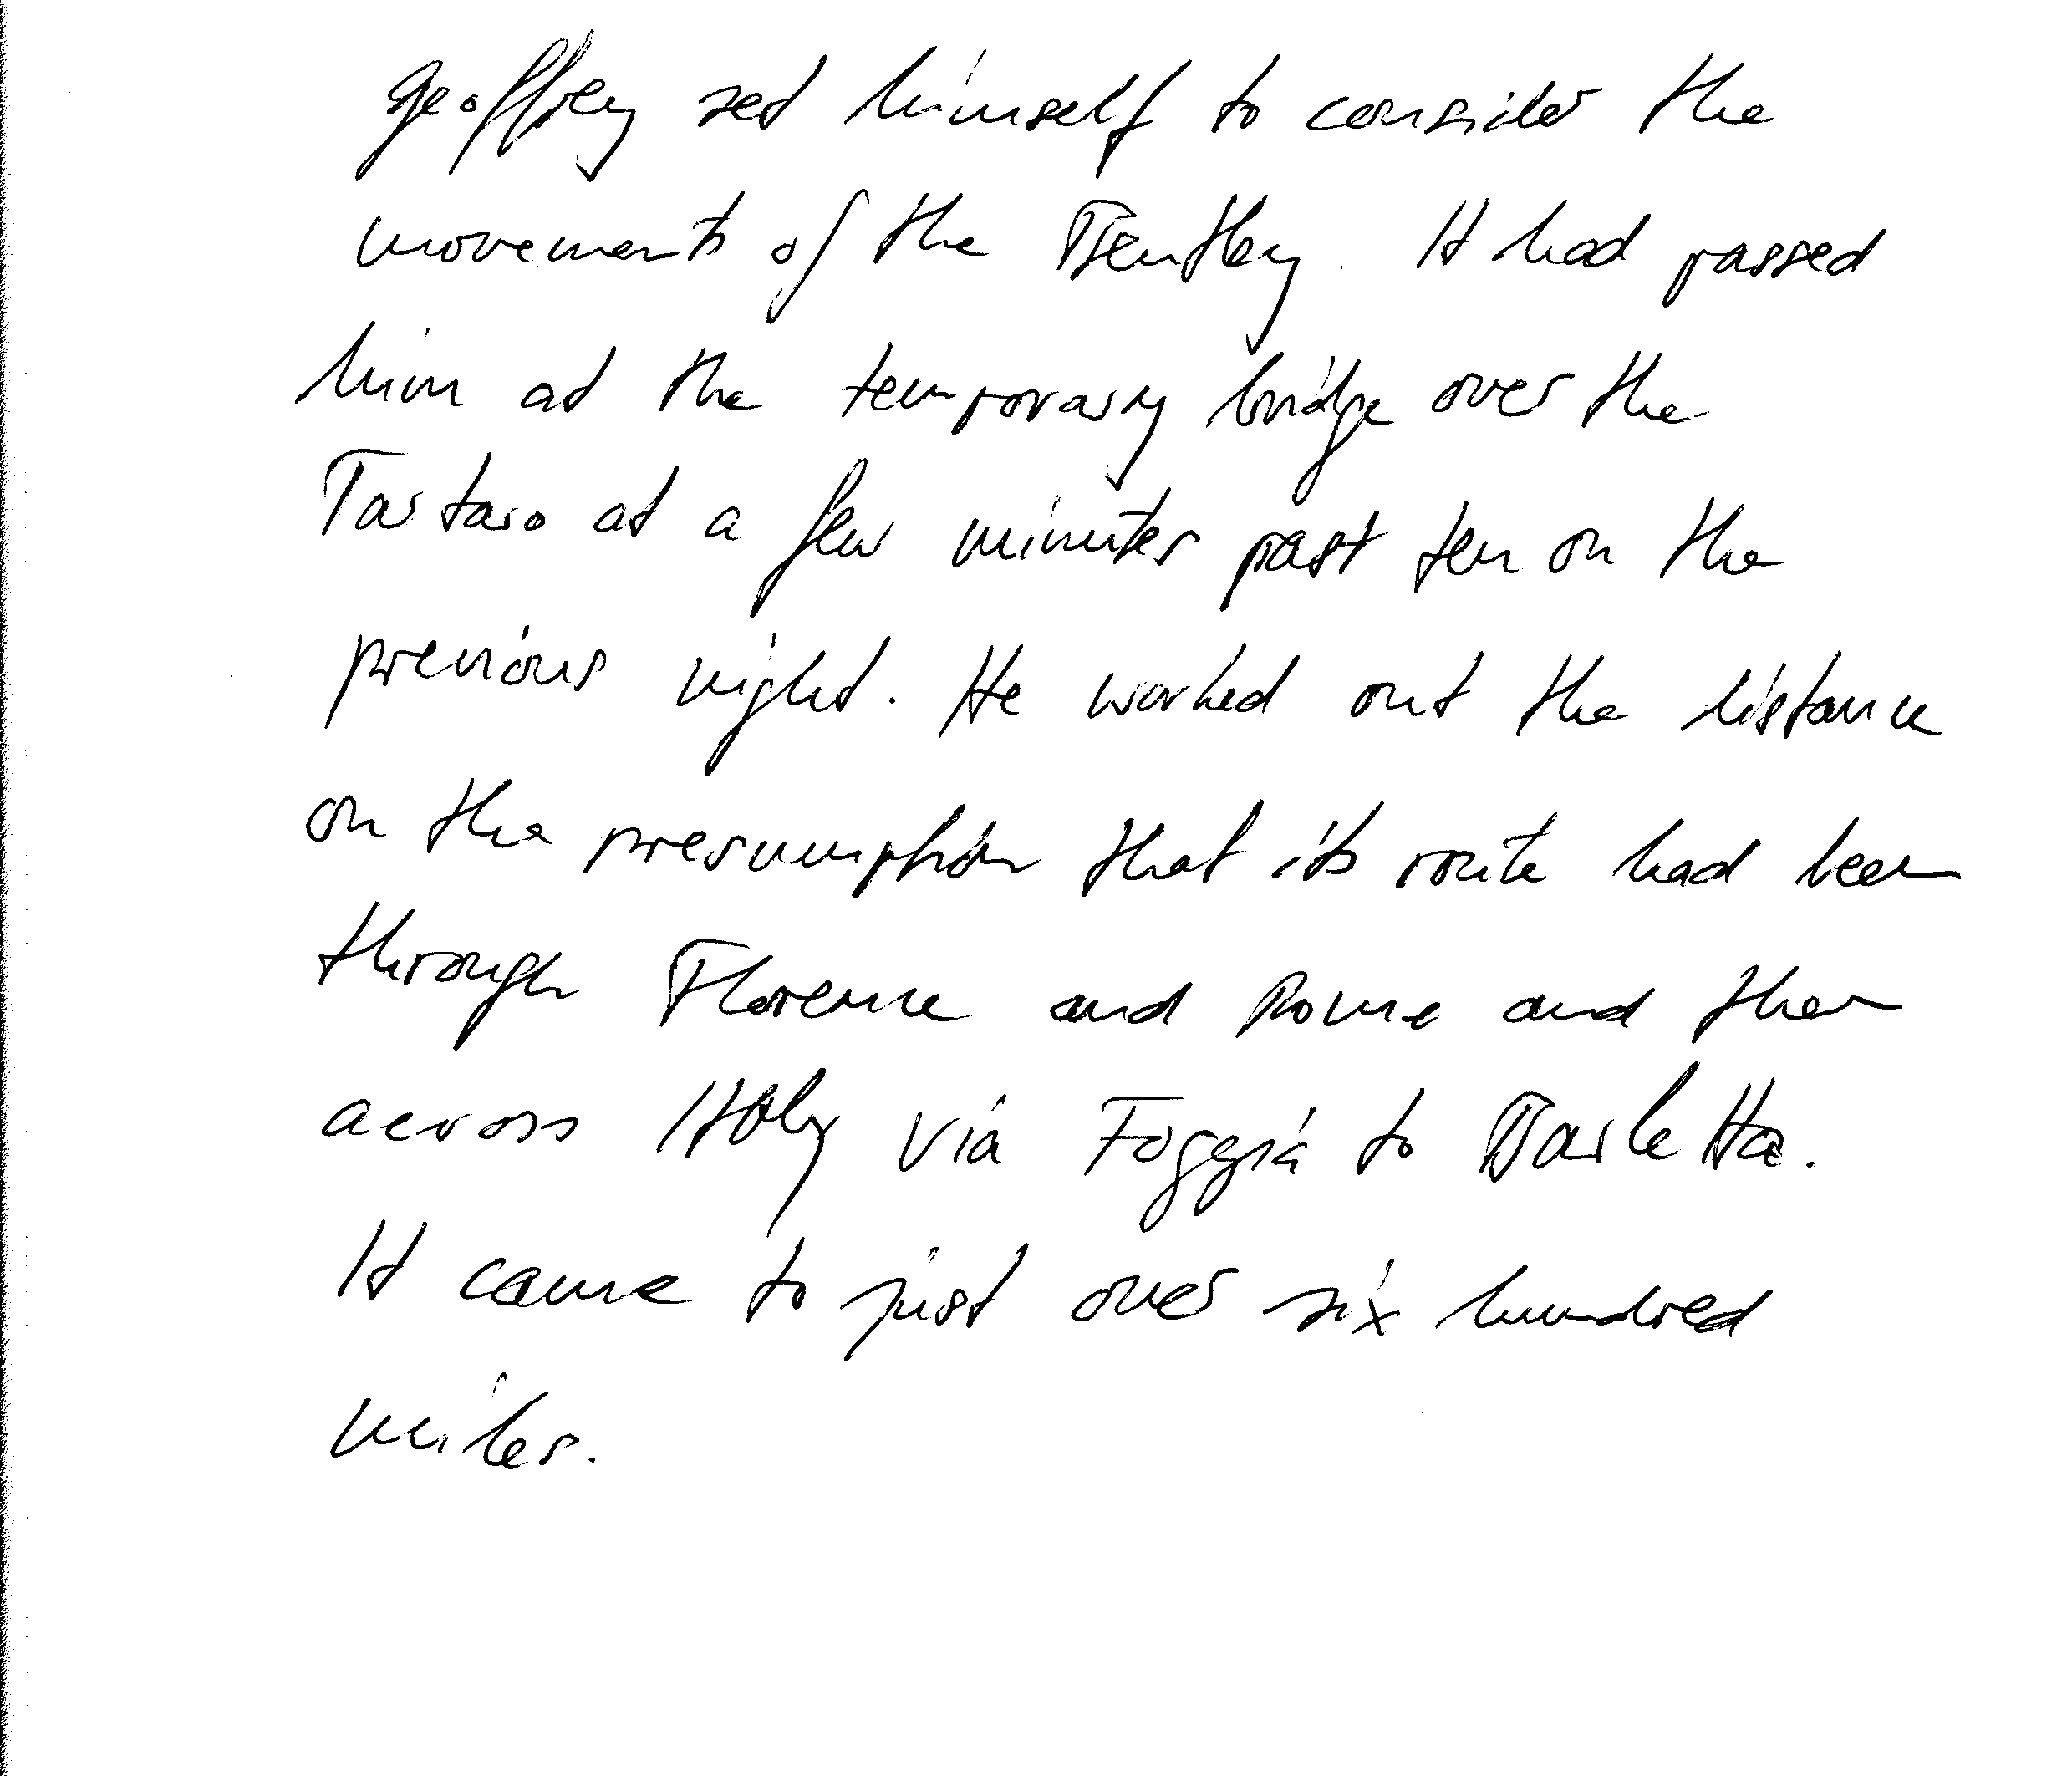 Geoffrey set himself to consider the
movements of the Bentley. It had passed
him at the temporary bridge over the
Tartaro at a few minutes past ten on the
previous night. He worked out the distance
on the presumption that its route had been
through Florence and Rome and then
across Italy via Foggia to Barletta.
It came to just over six hundred
miles.